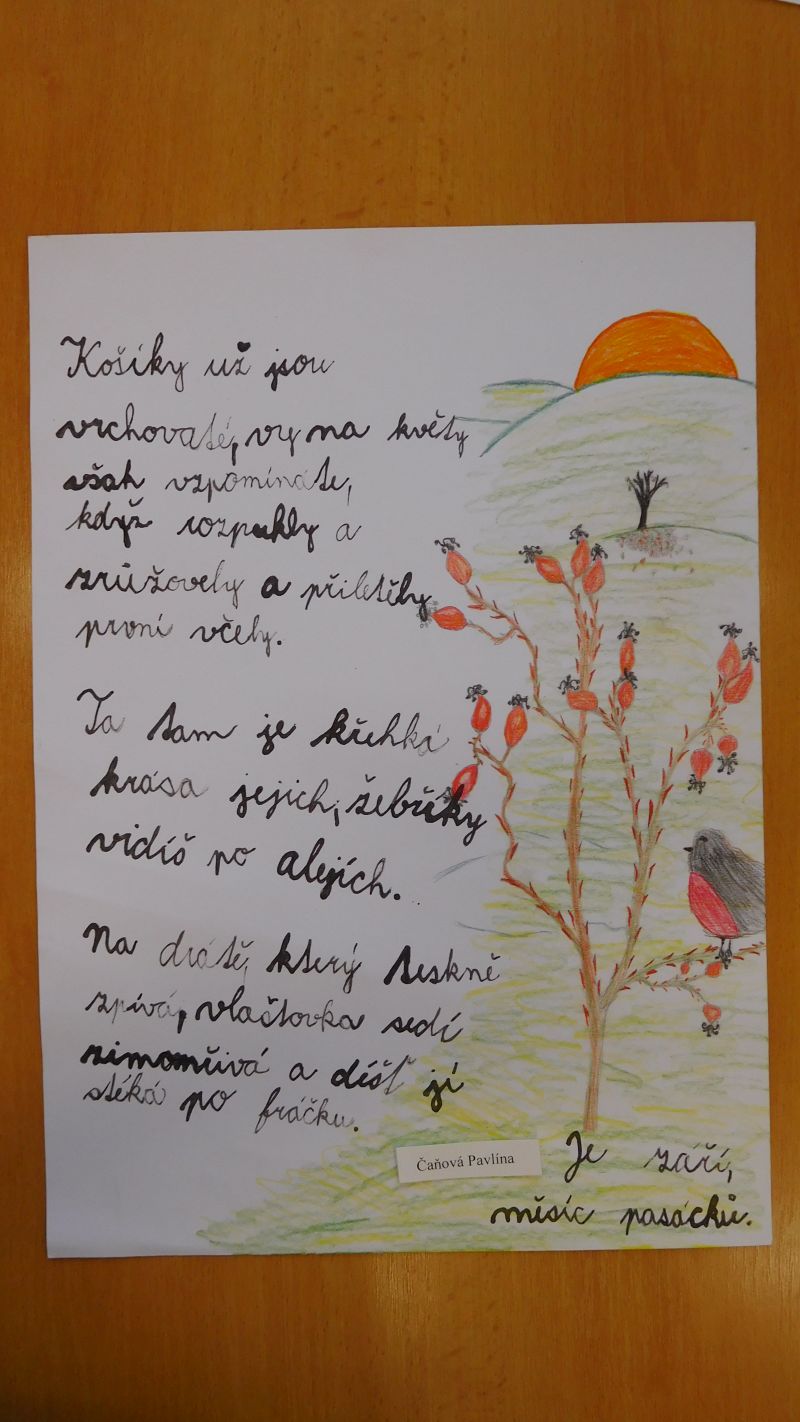 Košíky už jsou
vrchovaté, vy na květy
však vzpomínáte,
když rozpukly a
zrůžověly a přiletěly
první včely.
Ta tam je křehká
krása jejich, žebříky
vidíš po alejích.
Na drátě, který teskně
zpívá, vlaštovka sedí
zimomřivá a déšť jí
stéká po fráčku.
Čaňová Pavlína
Je září,
měsíc pasáčků.